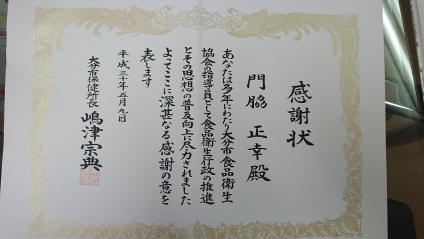 感謝状
門脇 正幸 殿
あなたは多年にわたり大分市食品衛生
協会の指導員として食品衛生行政の推進
とその思想の普及向上に尽力されました
よってここに深甚なる感謝の意を
表します
平成三十年五月九日
大分市保健所長 嶋津宗典